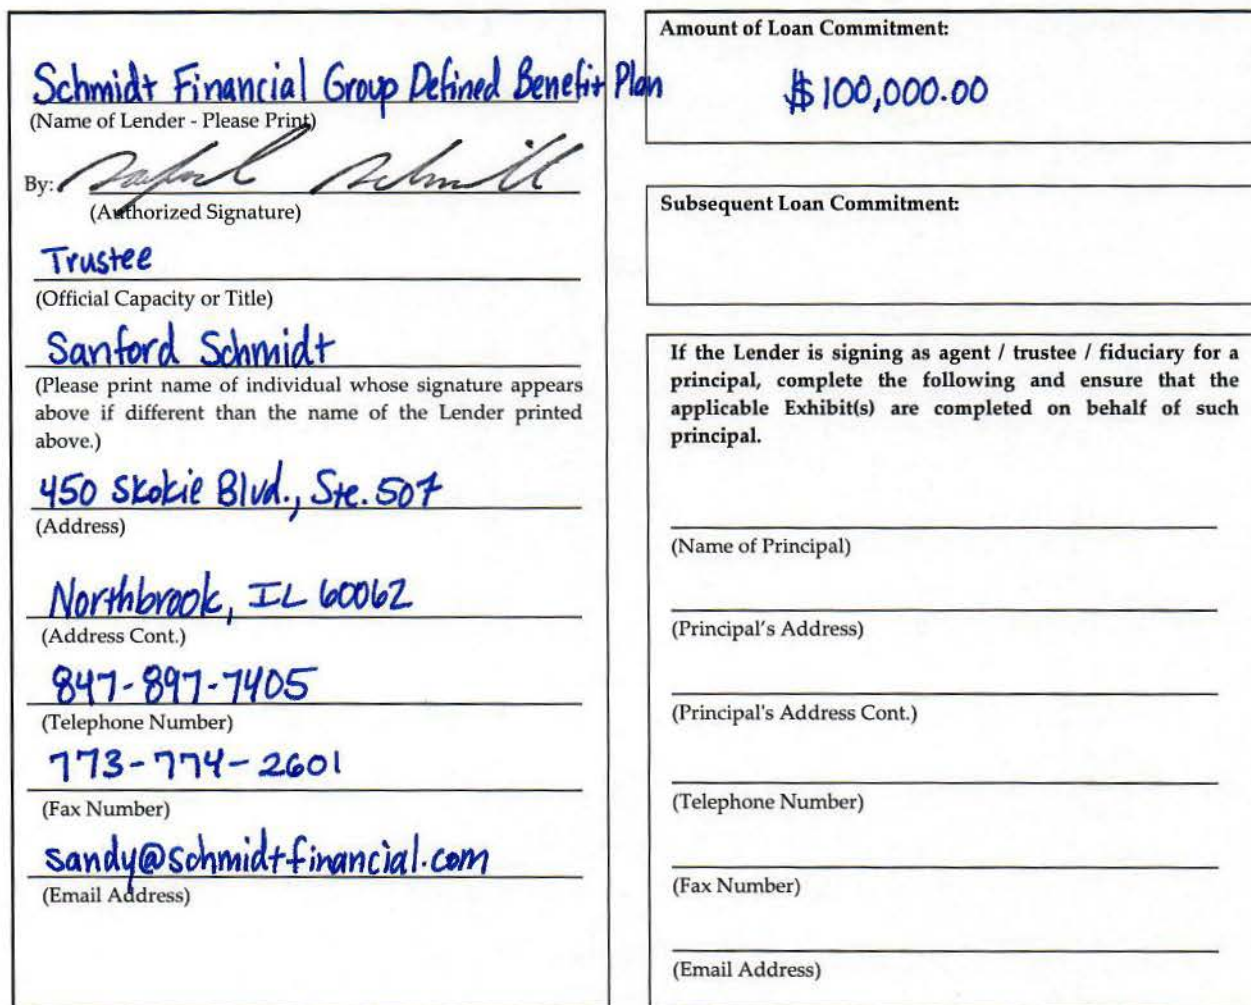 Schmidt Financial Group Defined Benefit Plan
(Name of Lender - Please Print)
By: Sanford Schmidt
(Authorized Signature)
Trustee
(Official Capacity or Title)
Sanford Schmidt
(Please print name of individual whose signature appears
above if different than the name of the Lender printed
above.)
450 Skokie Blvd., Ste. 507
(Address)
Northbrook, IL 60062
(Address Cont.)
847-897-7405
(Telephone Number)
773-774-2601
(Fax Number)
sandy@schmidtfinancial.com
(Email Address)
Amount of Loan Commitment:
$100,000.00
Subsequent Loan Commitment:
If the Lender is signing as agent / trustee / fiduciary for a
principal, complete the following and ensure that the
applicable Exhibit(s) are completed on behalf of such
principal.
(Name of Principal)
(Principal's Address)
(Principal's Address Cont.)
(Telephone Number)
(Fax Number)
(Email Address)